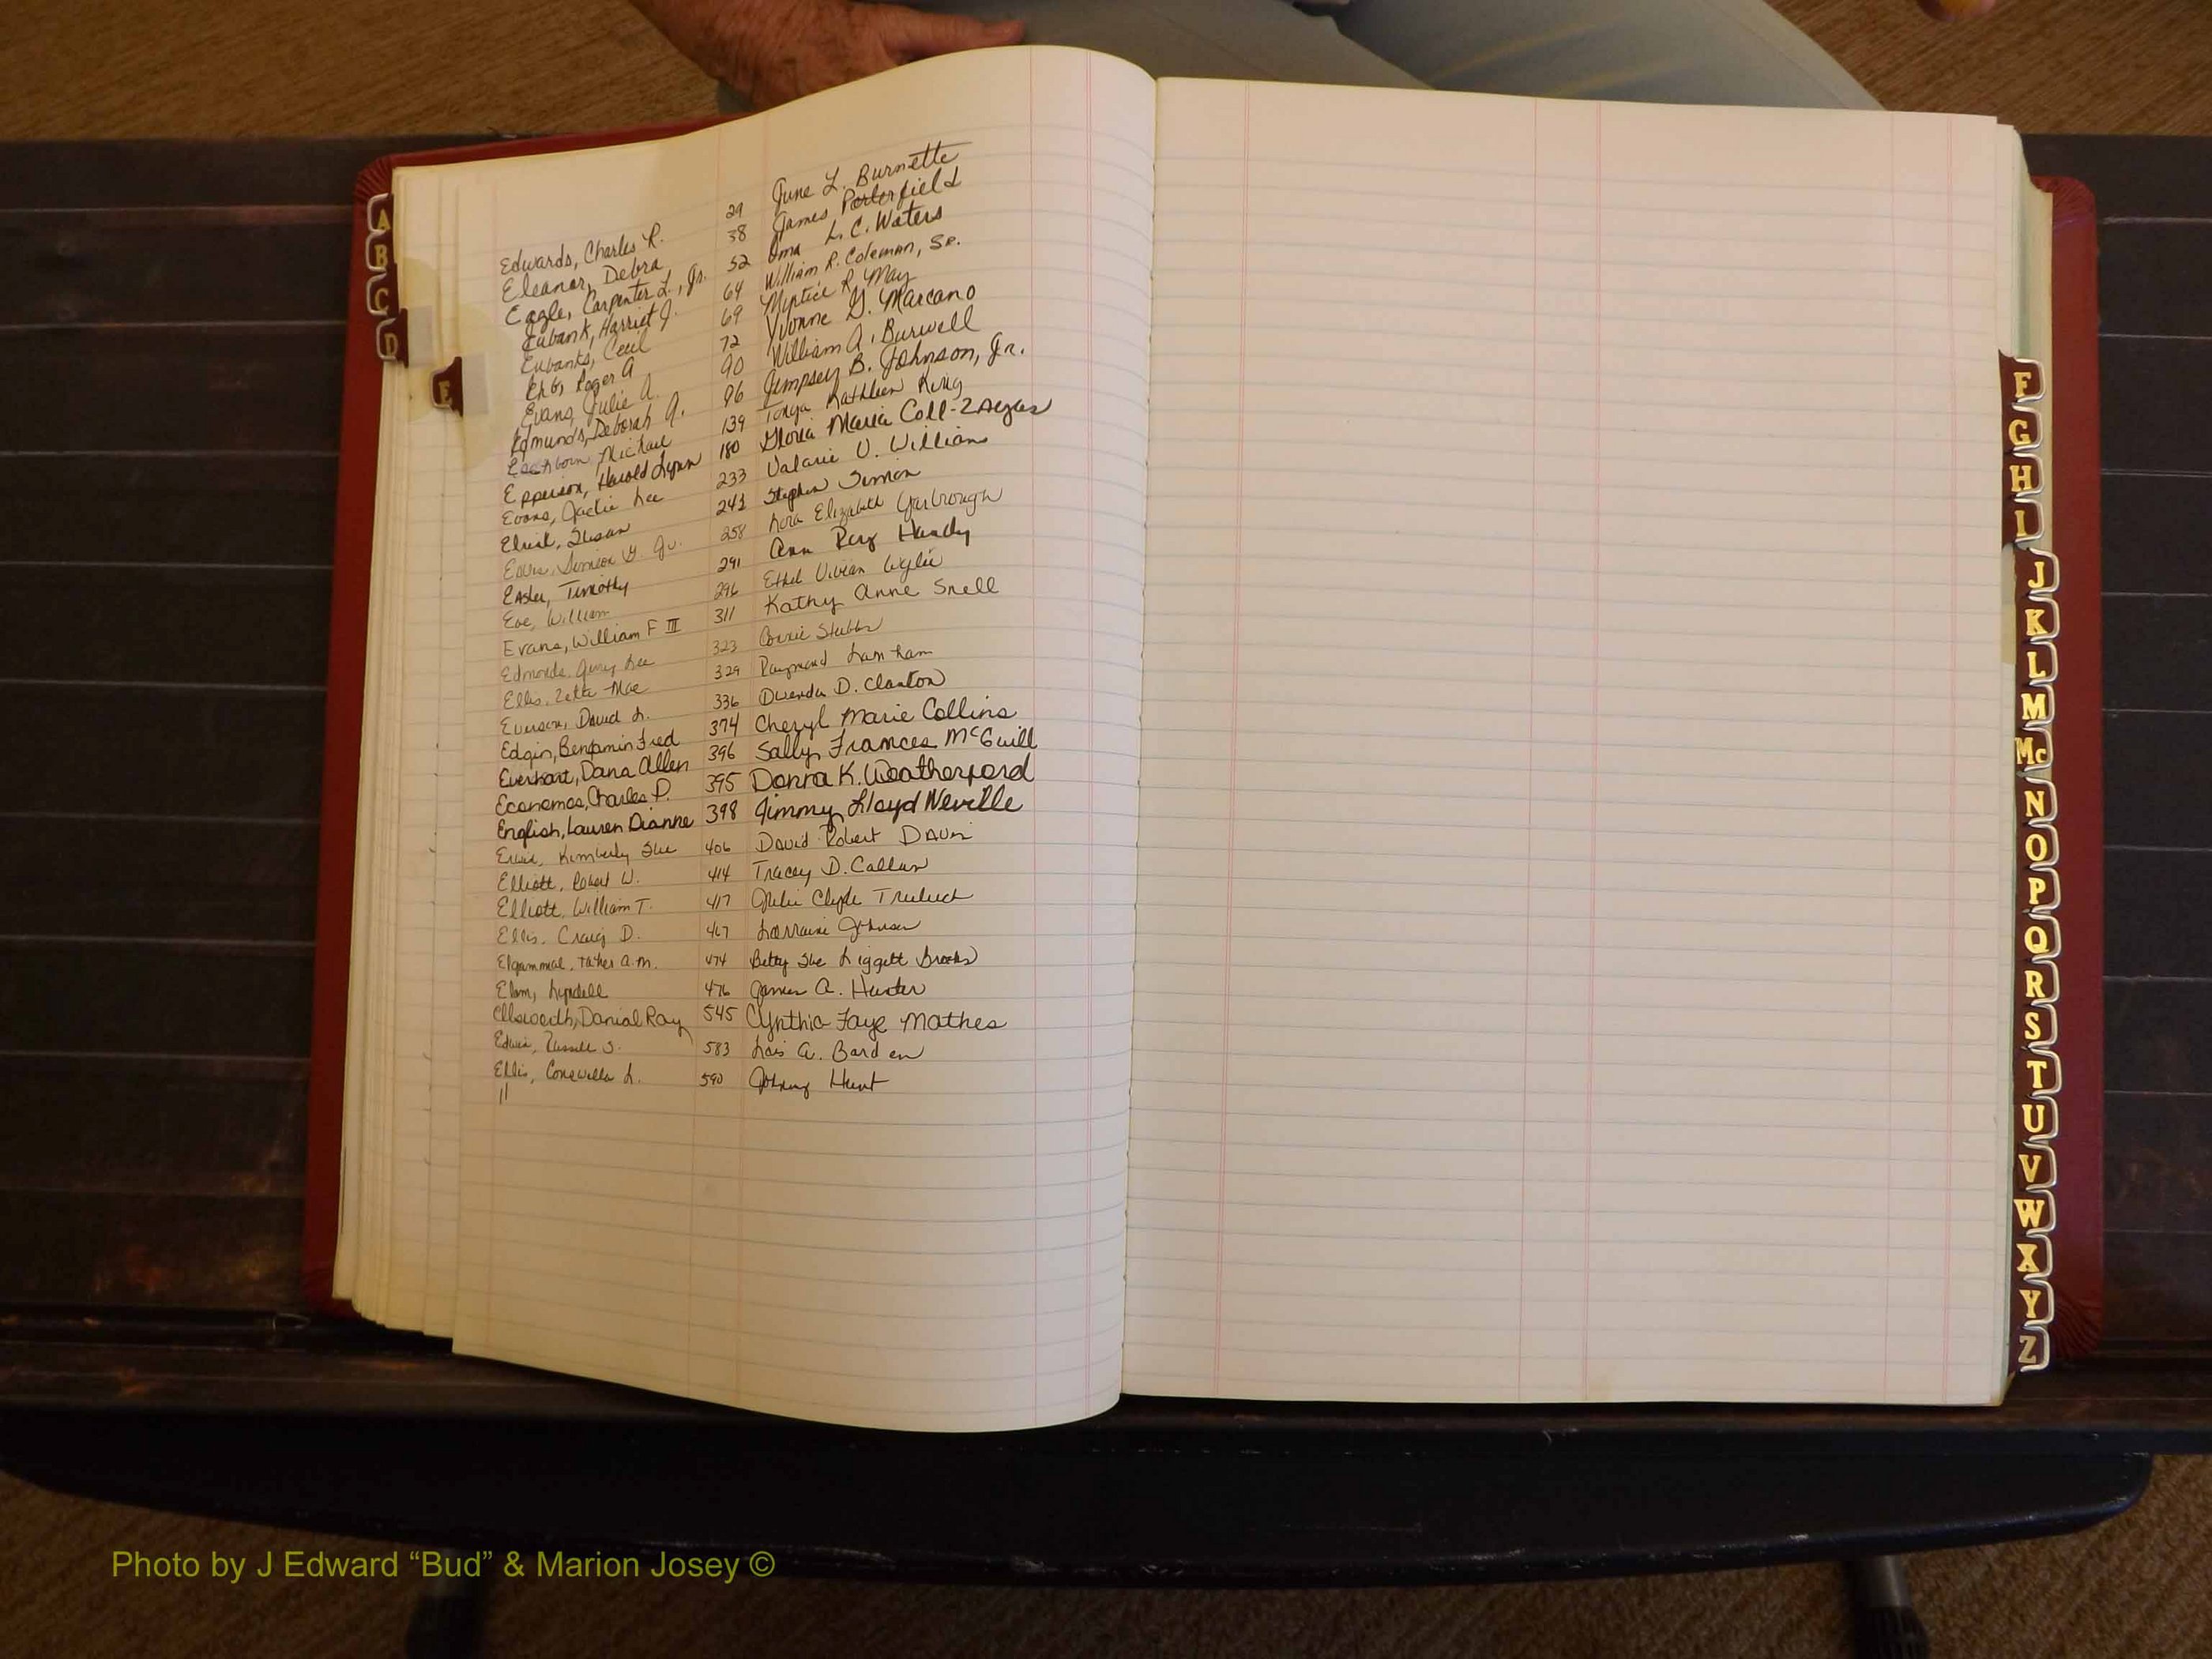 Edwards, Charles R. 29 June L. Burnette
Eleanor, Debra 38 James Porterfield
Eagle, Carpenter L., Jr. 52 Oma L. C. Waters
Eubank, Harriet J. 64 William R. Coleman, Sr.
Eubanks, Cecil 69 Myrtice R. May
Roger A 72 Yvonne G. Marcano
Evans, Julie A. 90 William A. Burwell
Edmunds, Deborah A. 96 Jimpsey B. Johnson, Jr.
Michael 139 Tonya Kathleen King
Epperson, Harold Lynn 180 Gloria Maria Coll-Zayas
Evans, Jackie Lee 233 Valarie V. Williams
Susan 241 Stephen Simon
Jr. 258 Lora Elizabeth Yarbrough
Easler, Timothy 291 Ann Roy Handy
Eve, William 296 Ethel Vivian Wylie
Evans, William F III 311 Kathy Anne Snell
Edmonds, Jerry Lee 323 Connie Stubbs
Ellis, Zetta Mae 329 Raymond Lanham
Everson, David L. 336 Duenda D. Clanton
Edgin, Benjamin Fred 374 Cheryl Marie Collins
Everhart, Dana Allen 396 Sally Frances McGuill
Economos, Charles P. 395 Donna K. Weatherford
English, Lauren Dianne 398 Jimmy Lloyd Neville
Kimberly Sue 406 David Robert Davis
Elliott, Robert W. 414 Tracey D. Callan
Elliott, William T. 417 Julie Clyde Truluck
Ellis, Craig D. 467 Lorraine Johnson
Elgammal, Taher A.M. 474 Betty Sue Liggett Brooks
Elam, Lyndell 476 James A. Hunter
Ellsworth, Danial Ray 545 Cynthia Faye Mathes
Russell S. 583 Lois A. Barden
Ellis, Conswella L. 590 Johnny Hunt
"
A
B
C
D
E
F
G
H
I
J
K
L
M
Mc
N
O
P
Q
R
S
T
U
V
W
X
Y
Z
Photo by J Edward “Bud” & Marion Josey ©